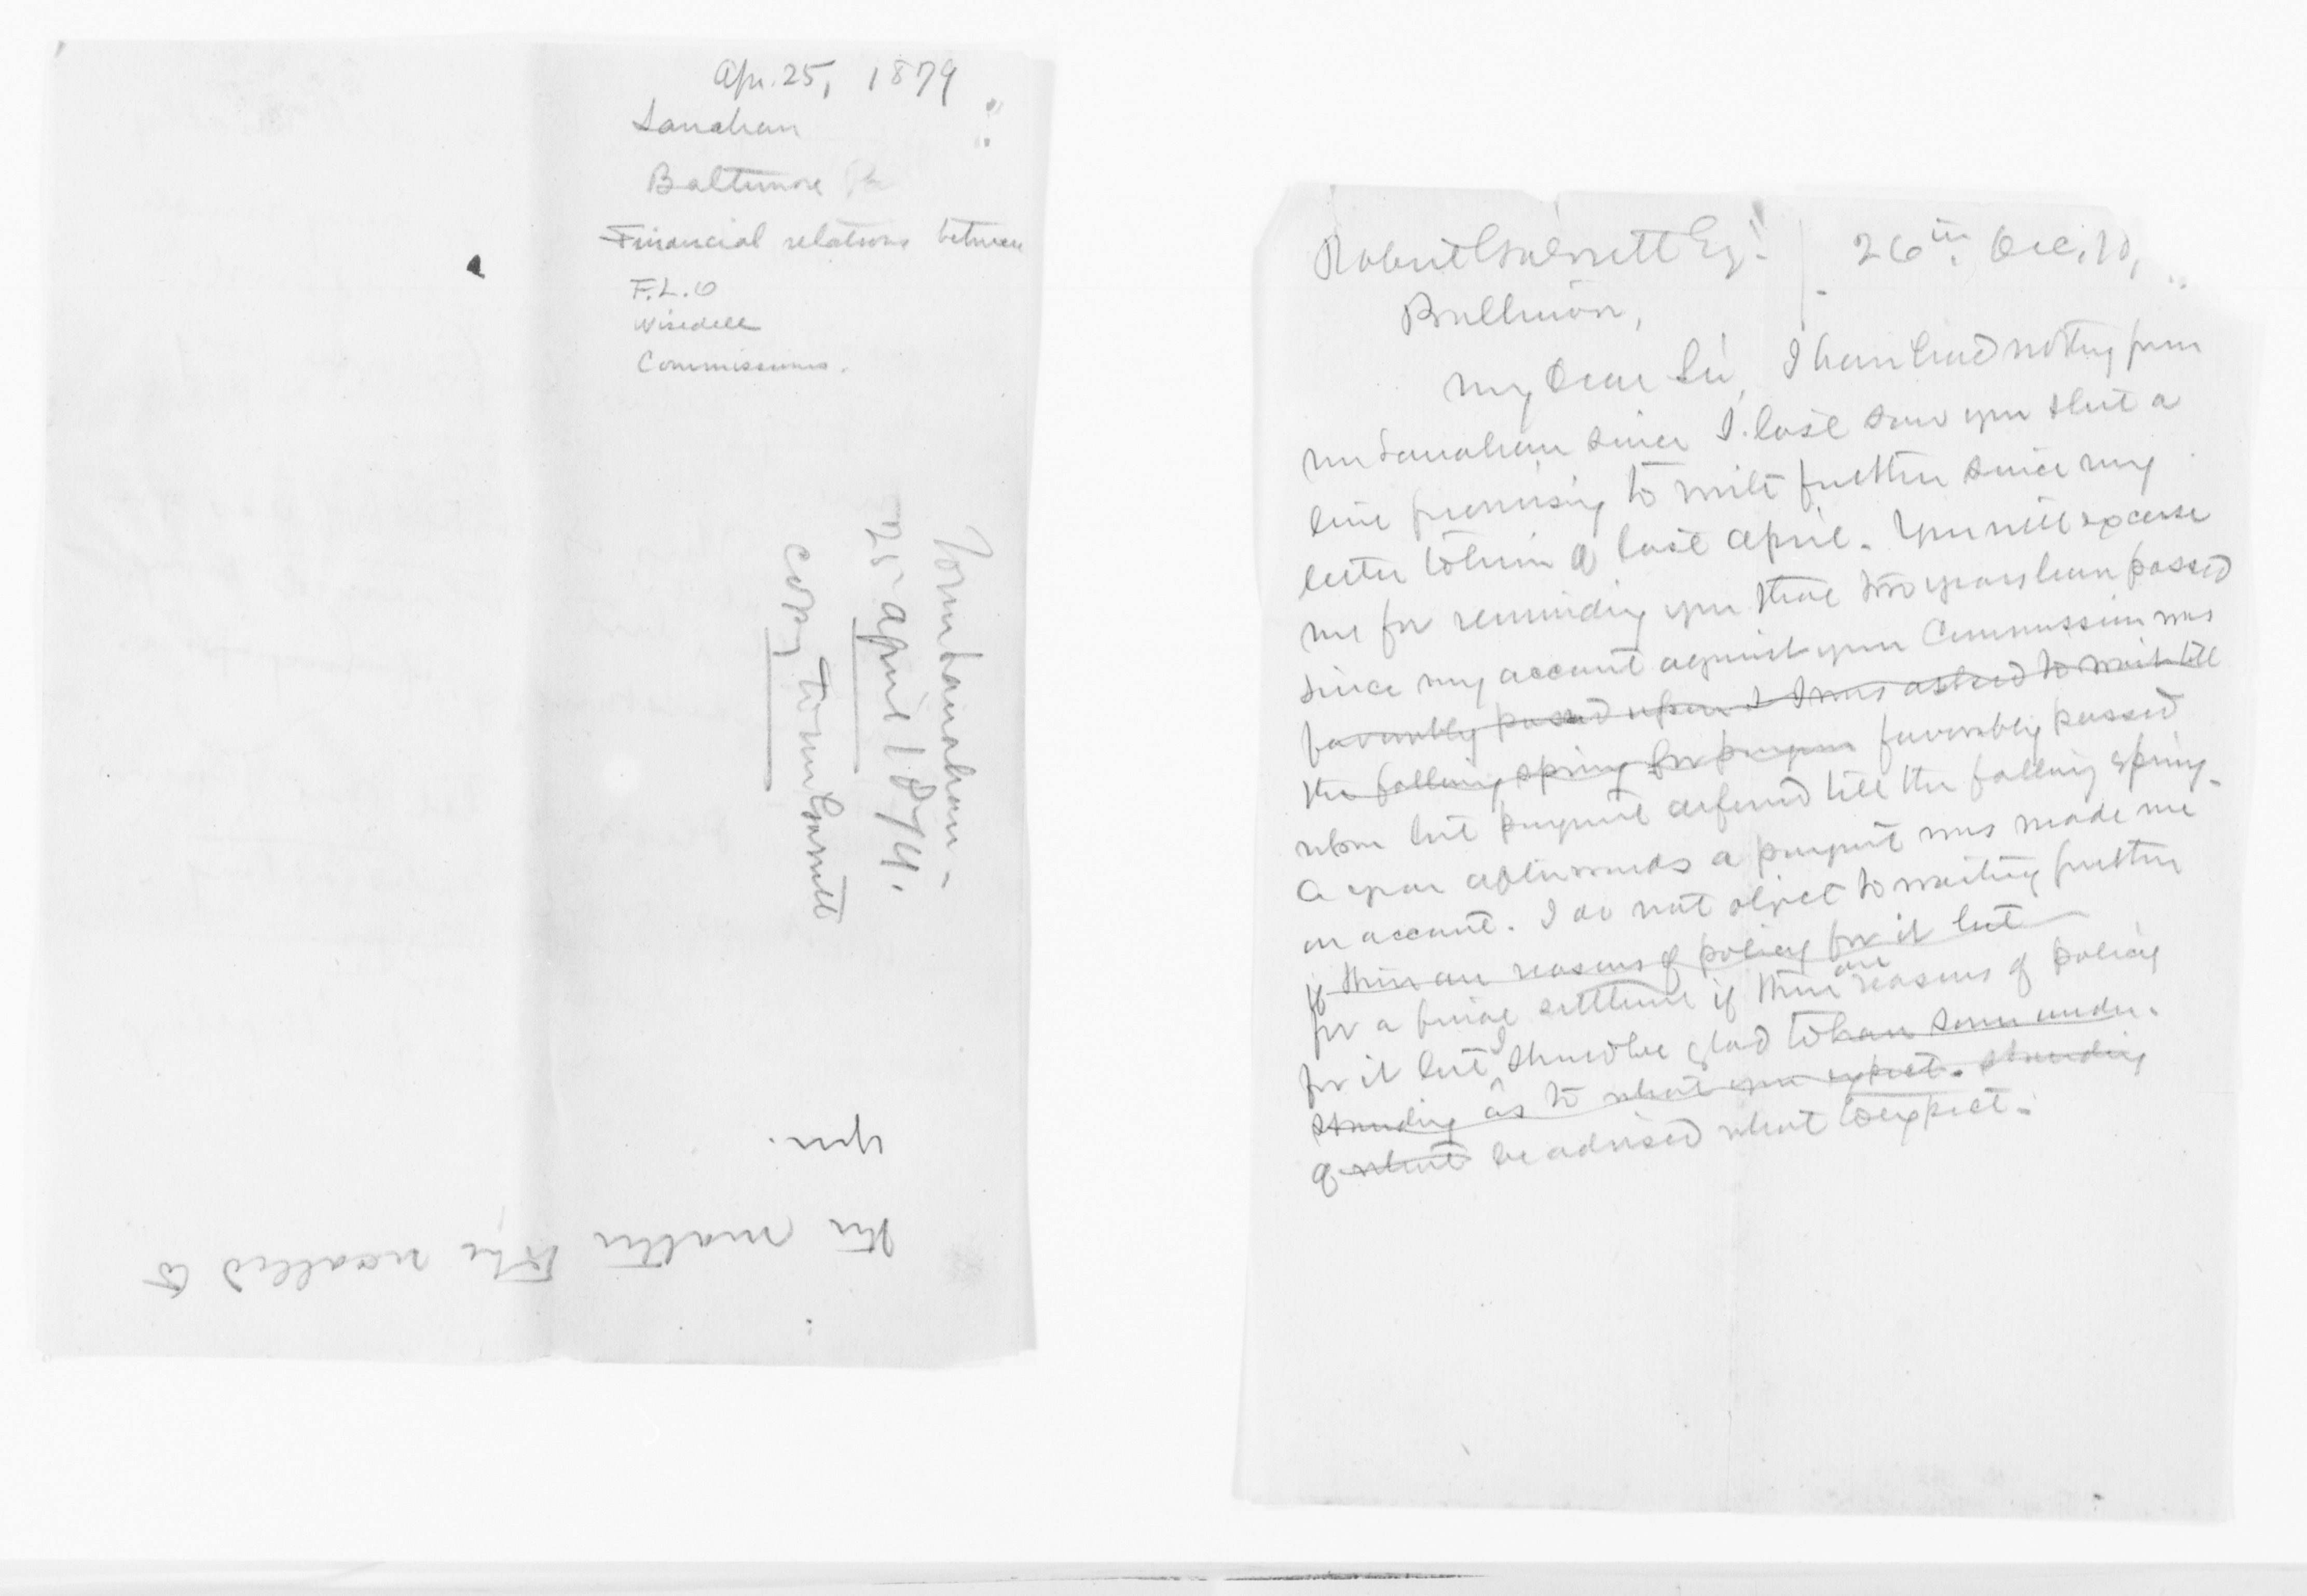 Apr. 25, 1879
Lanahan
Baltimore
Financial relations between
F.L.O
Wisedell
Commissions.
To Mr Lanahan.
25 April 1879.
copy to Mr Garrett
the matter to be recalled to
you.
Robert Garrett Esq. 26th Dec.
Baltimore,
My Dear Sir, I have had nothing from
Mr Lanahan since I last saw you but a
line promising to write further since my
letter to him of last April. You will excuse
me for reminding you that two years have passed
since my account against your Commission was
favorably passed upon & I was asked to wait till
the following spring for favorably passed
upon but payment deferred till the following spring.
A year afterwards a payment was made me
on account. I do not object to waiting further
if there are reasons of policy for it but
for a final settlement if there are reasons of policy
for it but I should be glad to have some under-
standing as to what you expect. standing
of what be advised what to expect.